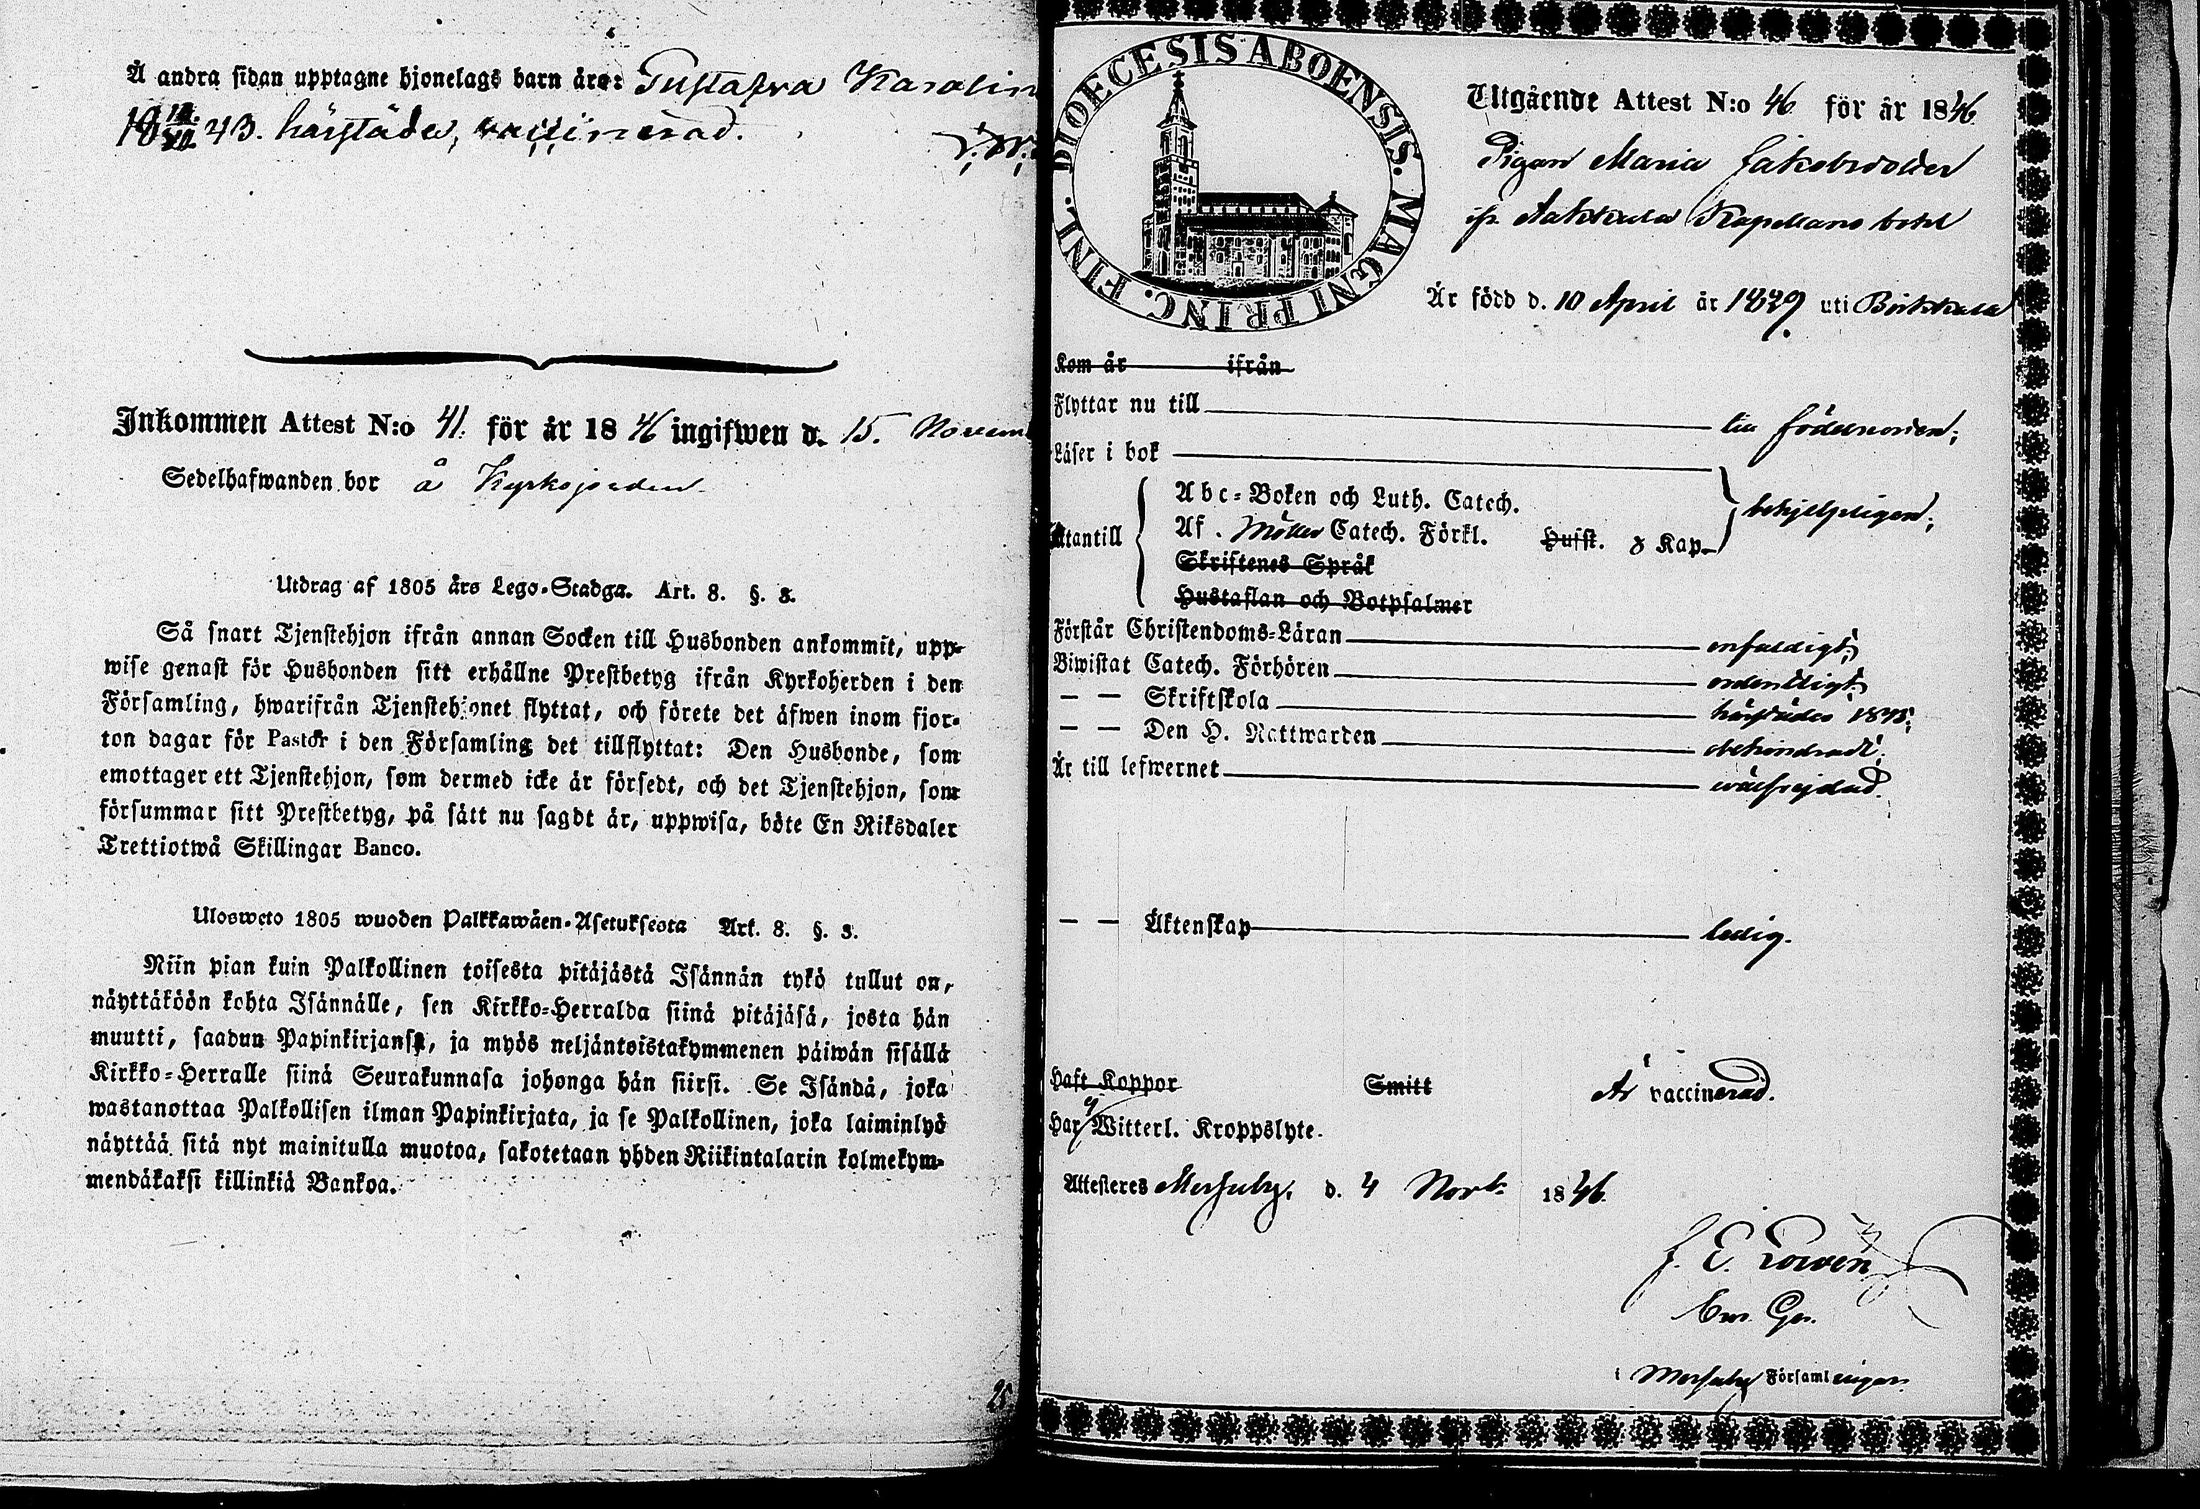 Å andra sidan upptagne hjonelags barn äro: Gustafva Karolin
18 43. härstädes, vaccinerad.
Inkommen Attest N:o 41. för år 1846 ingifwen d. 15. Novemb
Sedelhafwanden bor å Kyrkojorden
Utdrag af 1805 års Lego-Stadga. Art. 8. §. 3.
Så snart Tjenstehjon ifrån annan Socken till Husbonden ankommit, upp-
wise genast för Husbonden sitt erhållne Prestbetyg ifrån Kyrkoherden i den
Församling, hwarifrån Tjenstehjonet flyttat, och förete det äfwen inom fjor-
ton dagar för Pastor i den Församling det tillflyttat: Den Husbonde, som
emottager ett Tjenstehjon, som dermed icke är försedt, och det Tjenstehjon, som
försummar sitt Prestbetyg, på sätt nu sagdt är, uppwisa, böte En Riksdaler
Trettiotwå Skillingar Banco.
Ulosweto 1805 wuoden Palkkawäen-Asetuksesta Art. 8. §. 3.
Niin pian kuin Palkollinen toisesta pitäjästä Isännän tykö tullut on,
näyttäköön kohta Isännälle, sen Kirkko-Herralda siinä pitäjäsä, josta hän
muutti, saadun Papinkirjansa, ja myös neljäntoistakymmenen päiwän sisällä
Kirkko-Herralle siinä Seurakunnasa johonga hän siirsi. Se Isändä, joka
wastanottaa Palkollisen ilman Papinkirjata, ja se Palkollinen, joka laiminlyö
näyttää sitä nyt mainitulla muotoa, sakotetaan yhden Riikintalarin kolmekym-
mendäkaksi killinkiä Bankoa.
25
DIOECESIS ABOENSIS. MAGNI PRINC. FINL.
Utgående Attest N:o 46 för år 1846
Pigan Maria Jakobsdotter
ifr. Kapellans bohl
Är född d. 10 April år 1829. uti Birkkala
Kom år ifrån
Flyttar nu till till födelseorten;
Läser i bok
Utantill
Abc-Boken och Luth. Catech.
Af. Möllers Catech. Förkl. Hufst. & Kap.
Skriftenes Språk
Hustaflan och Botpsalmer
behjelpligen;
Förstår Christendoms-Läran enfaldigt;
Biwistat Catech. Förhören ordentligt;
— — Skriftskola härstädes 1845;
— — Den H. Nattwarden obehindradt;
Är till lefwernet wälfrejdad.
— — Äktenskap ledig.
Haft Koppor Smitt Är vaccinerad.
Har ej Witterl. Kroppslyte.
Attesteres d. 4 Novb. 1846.
i Församlingen.